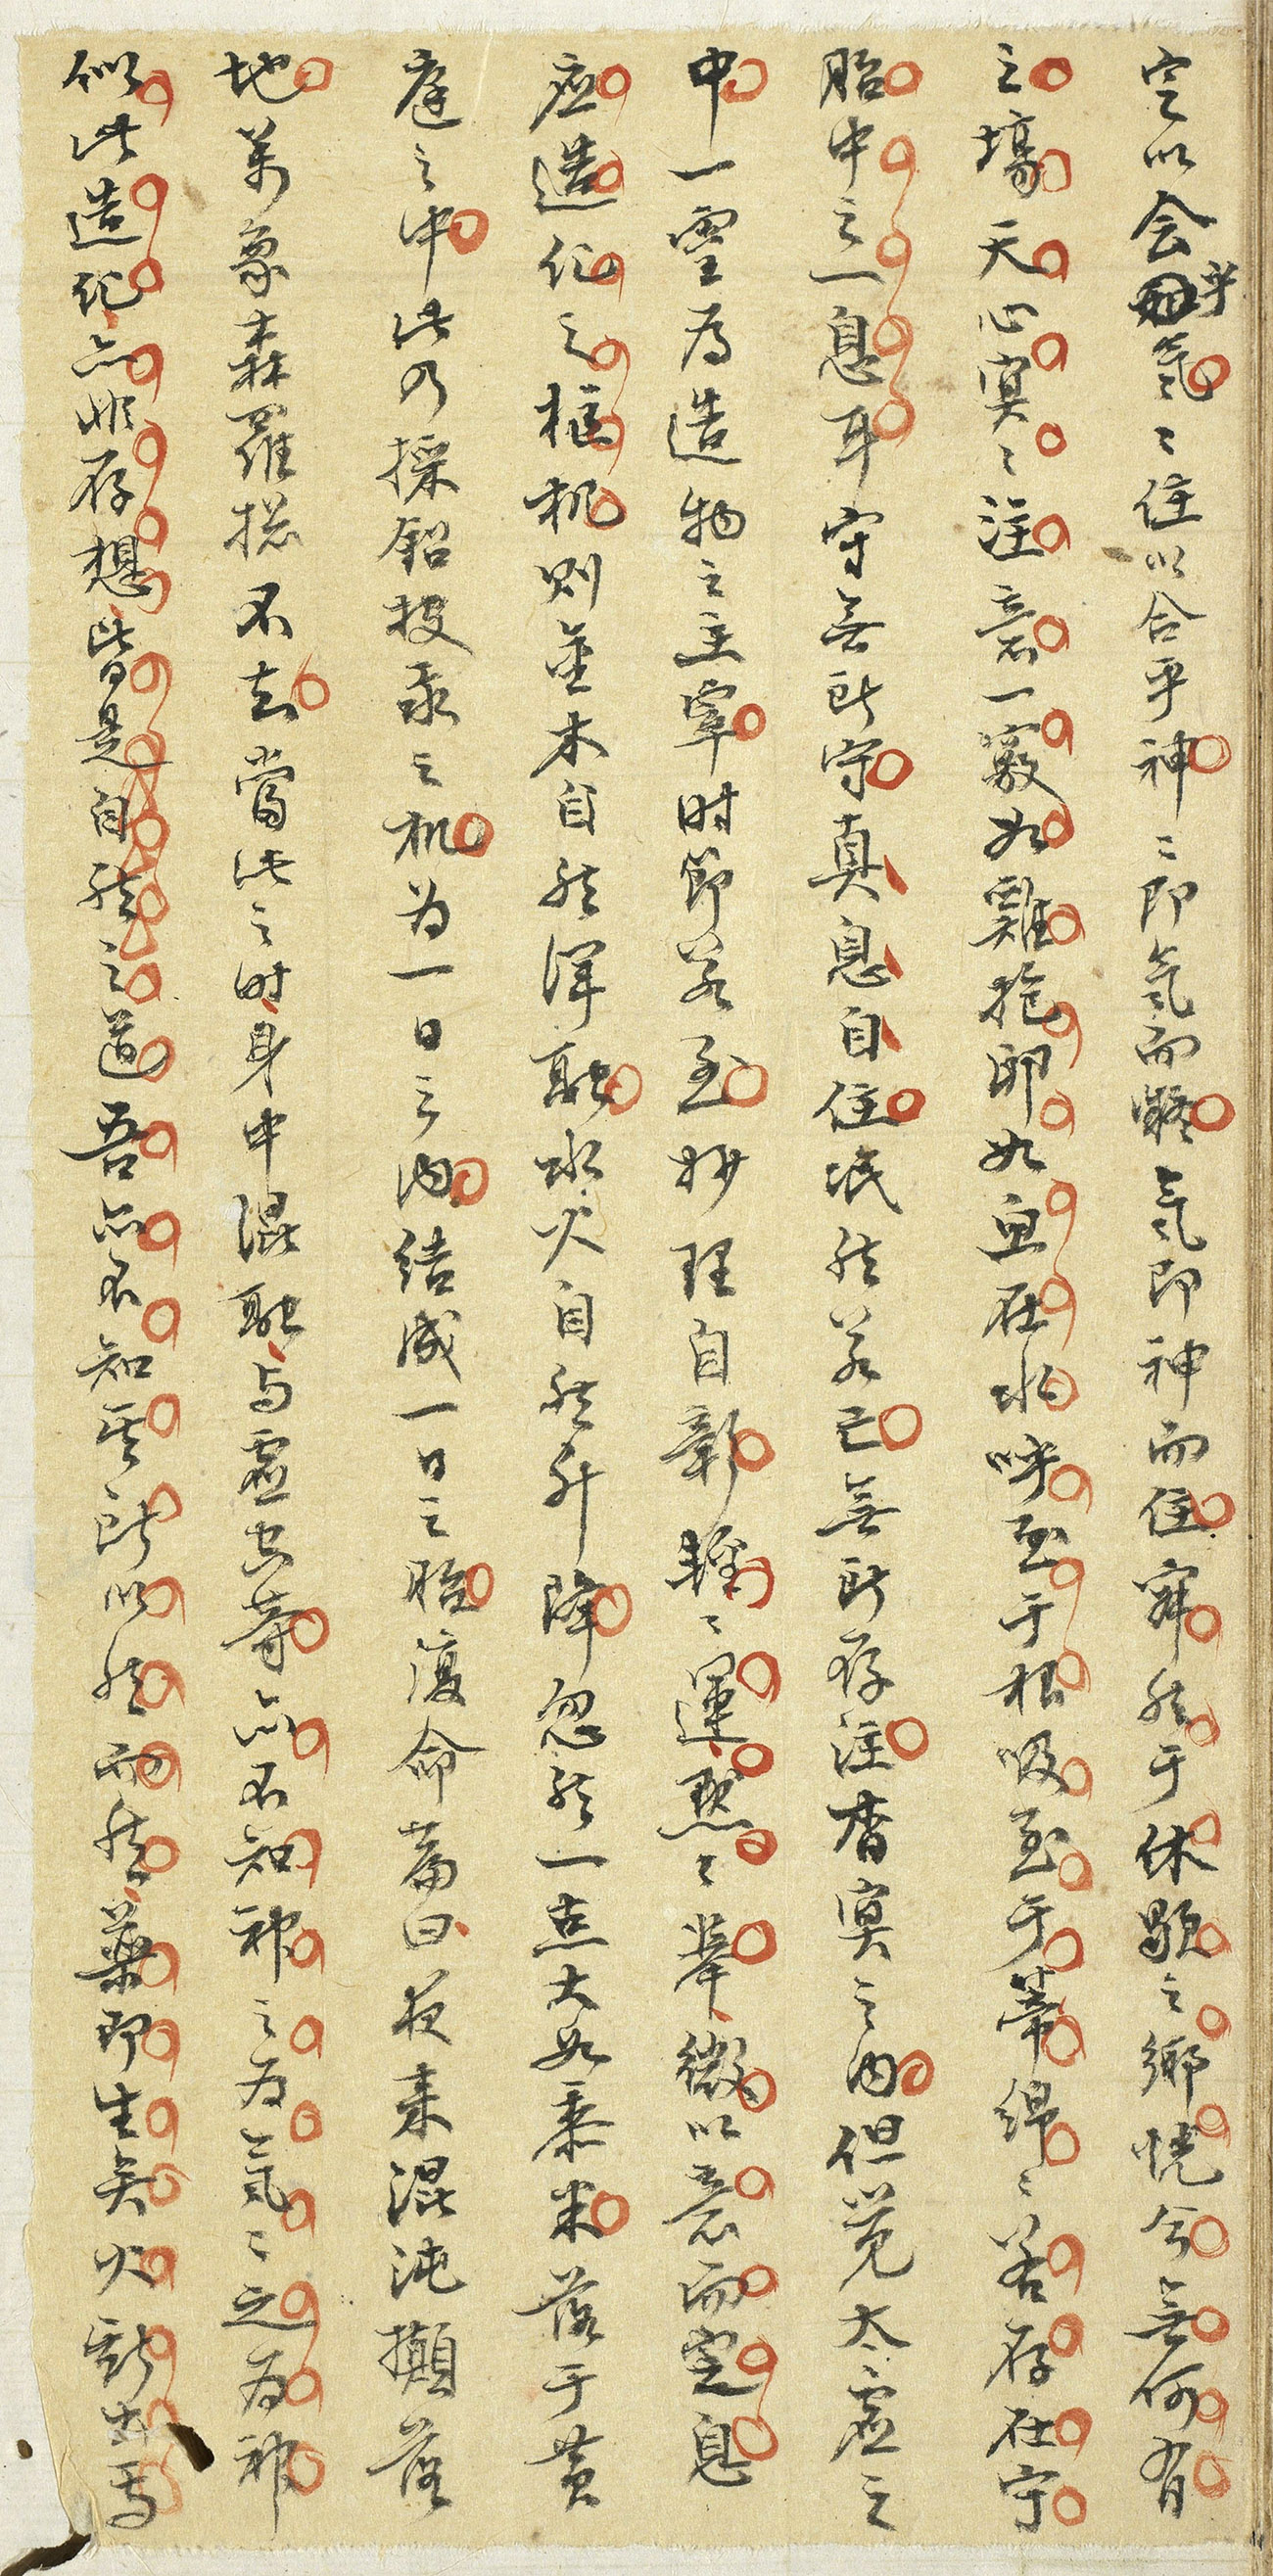 定以会乎氣〻住以合乎神〻即氣而凝氣即神而住寂然于休歇之鄉恍兮無何有
之壕天心寞〻注意一竅如雞抱卵如魚在水呼至于根吸至于蒂綿〻若存在守
胎中之一息耳守無所守真息自住泯然若亡無所存注杳寞之内但覚太虛之
中一靈為造物之主宰时節若至妙理自彰輕〻運默〻舉微以意而定息
應造化之樞机则金木自然渾融水火自然升降忽然一点大如黍米落于黄
庭之中此乃採鉛投汞之机为一日之内結成一日之胎復命篇曰夜来混沌攧落
地萬象森羅捴不去當此之时身中混融与虛空等亦不知神之为氣〻之为神
似此造化亦非存想皆是自然之道吾亦不知其所以然而然藥即生矣火斯出焉